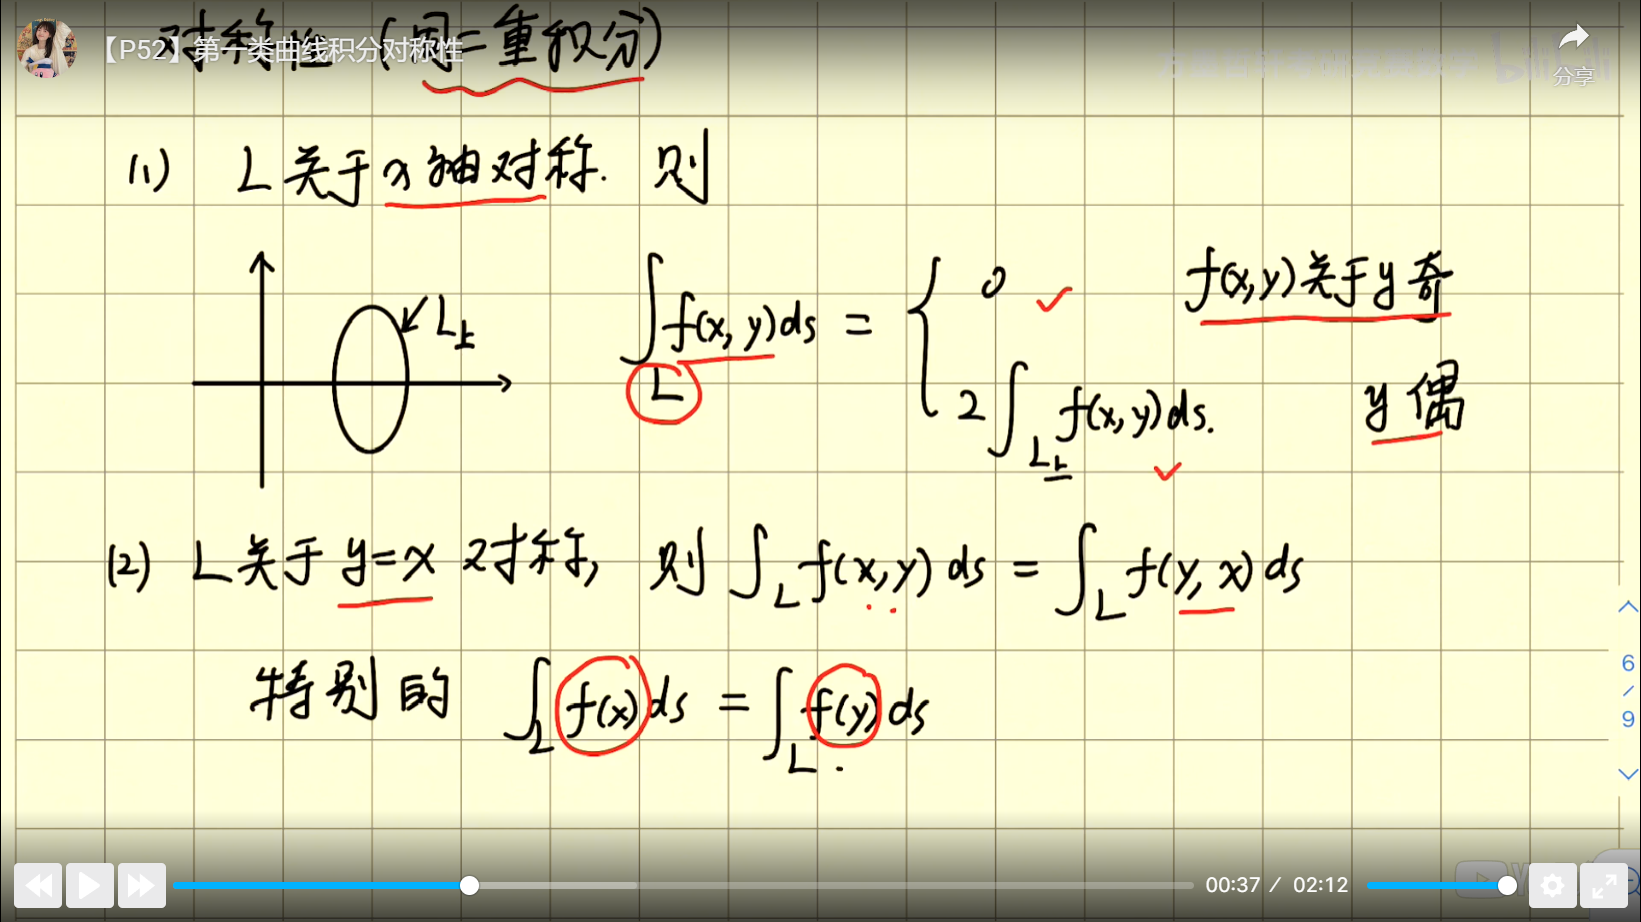 对称性 (同二重积分)
【P52】第一类曲线积分对称性
bilibili
分享
(1) L关于x轴对称. 则
L上
∫_L f(x, y)ds = { 0 f(x,y)关于y奇
2∫_{L上} f(x,y)ds. y偶
(2) L关于 y=x 对称, 则 ∫_L f(x,y) ds = ∫_L f(y, x) ds
特别的 ∫_L f(x) ds = ∫_L f(y) ds
6
/
9
00:37 / 02:12